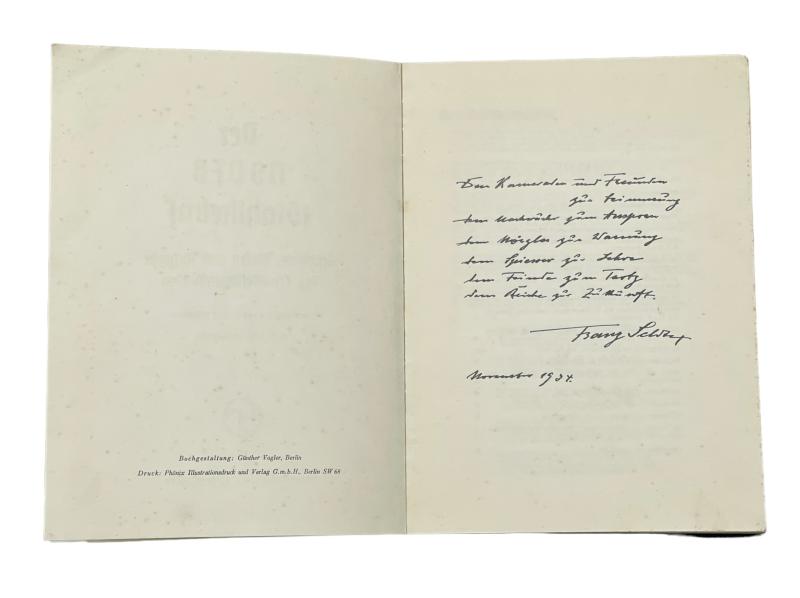 Buchgestaltung: Günther Vogler, Berlin
Druck: Phönix Illustrationsdruck und Verlag G.m.b.H., Berlin SW 68
Den Kameraden und Freunden
zur Erinnerung
dem zum Ansporn
dem Nörgler zur Warnung
dem Spiesser zur Lehre
dem Feinde zum Trotz
dem Reiche zur Zukunft.
Franz Seldte
November 1934.